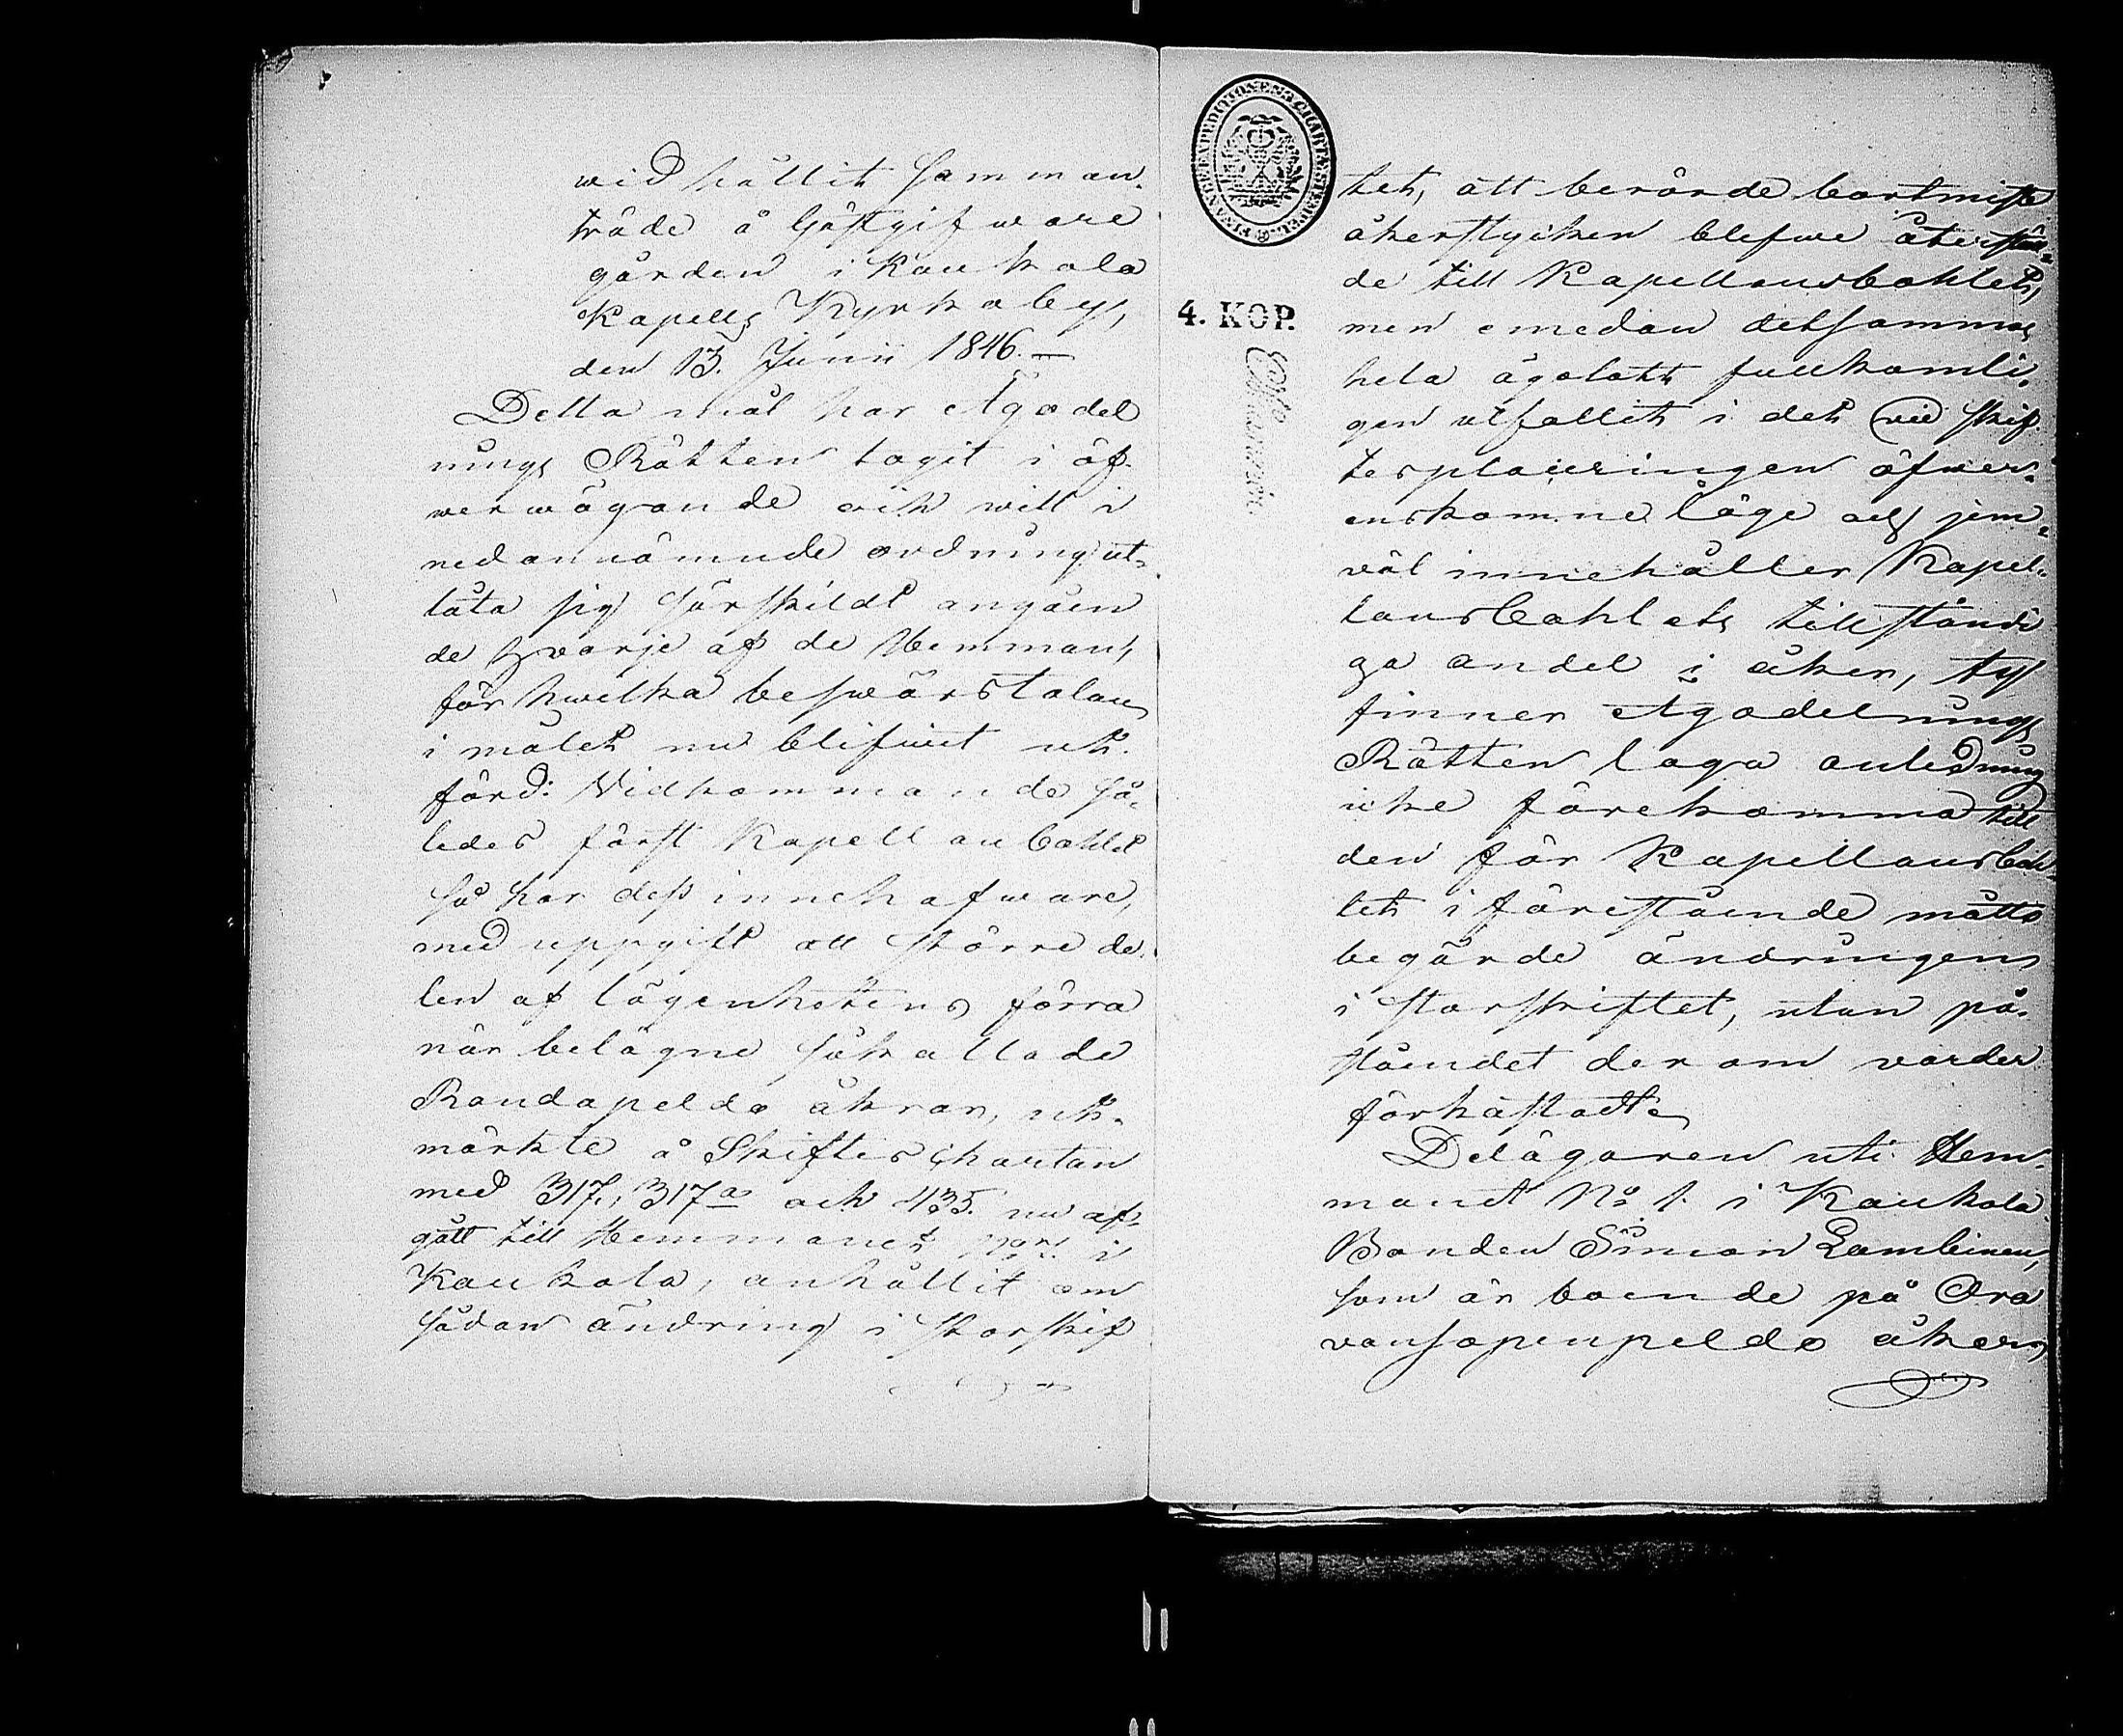 wid hållit samman-
träde å Gästgifware
gården i Kaukola
Kapells Kyrkoby,
den 13. Junii 1846.—
Detta mål har Ägodel
nings Rätten tagit i öf-
werwägande och will i
nedannämnde ordning ut-
låta sig särskildt angåen
de hvarje af de Hemman,
för hwilka beswärstalan
i målet nu blifwit ut-
förd: Vidkommande så-
ledes först Kapellanbohlet
så har dess innehafware,
med uppgift att större de-
len af lägenhetens förra
när belägne, såkallade
Raudapeldo åkrar, ut-
märkte å Skifteschartan
med 317, 317a och 435. nu af-
gått till Hemmanet i
Kaukola, anhållit om
sådan ändring i storskif
FINANCE EXPEDITIONENS CHARTÆ STEMPEL
4. KOP.
tet, att berörde bortmiste
åkerstycken blefwe återstäl-
de till Kapellansbohlet,
men emedan detsammas
hela ägolott fullkomli-
gen utfallit i det vid skif-
tesplaceringen öfwer-
enskomne läge och jem-
väl innehåller Kapel-
lansbohlets tillständi
ga andel i åker, ty
finner Ägodelnings
Rätten laga anledning
icke förekomma till
den för Kapellansboh-
let i förestående måtto
begärde ändringen
i storskiftet, utan på-
ståendet derom varder
förkastadt.
Delägaren uti Hem-
manet No 1. i Kaukola
Bonden Simon Lambinen,
som är boende på Ora
vansopenpeldo åker,